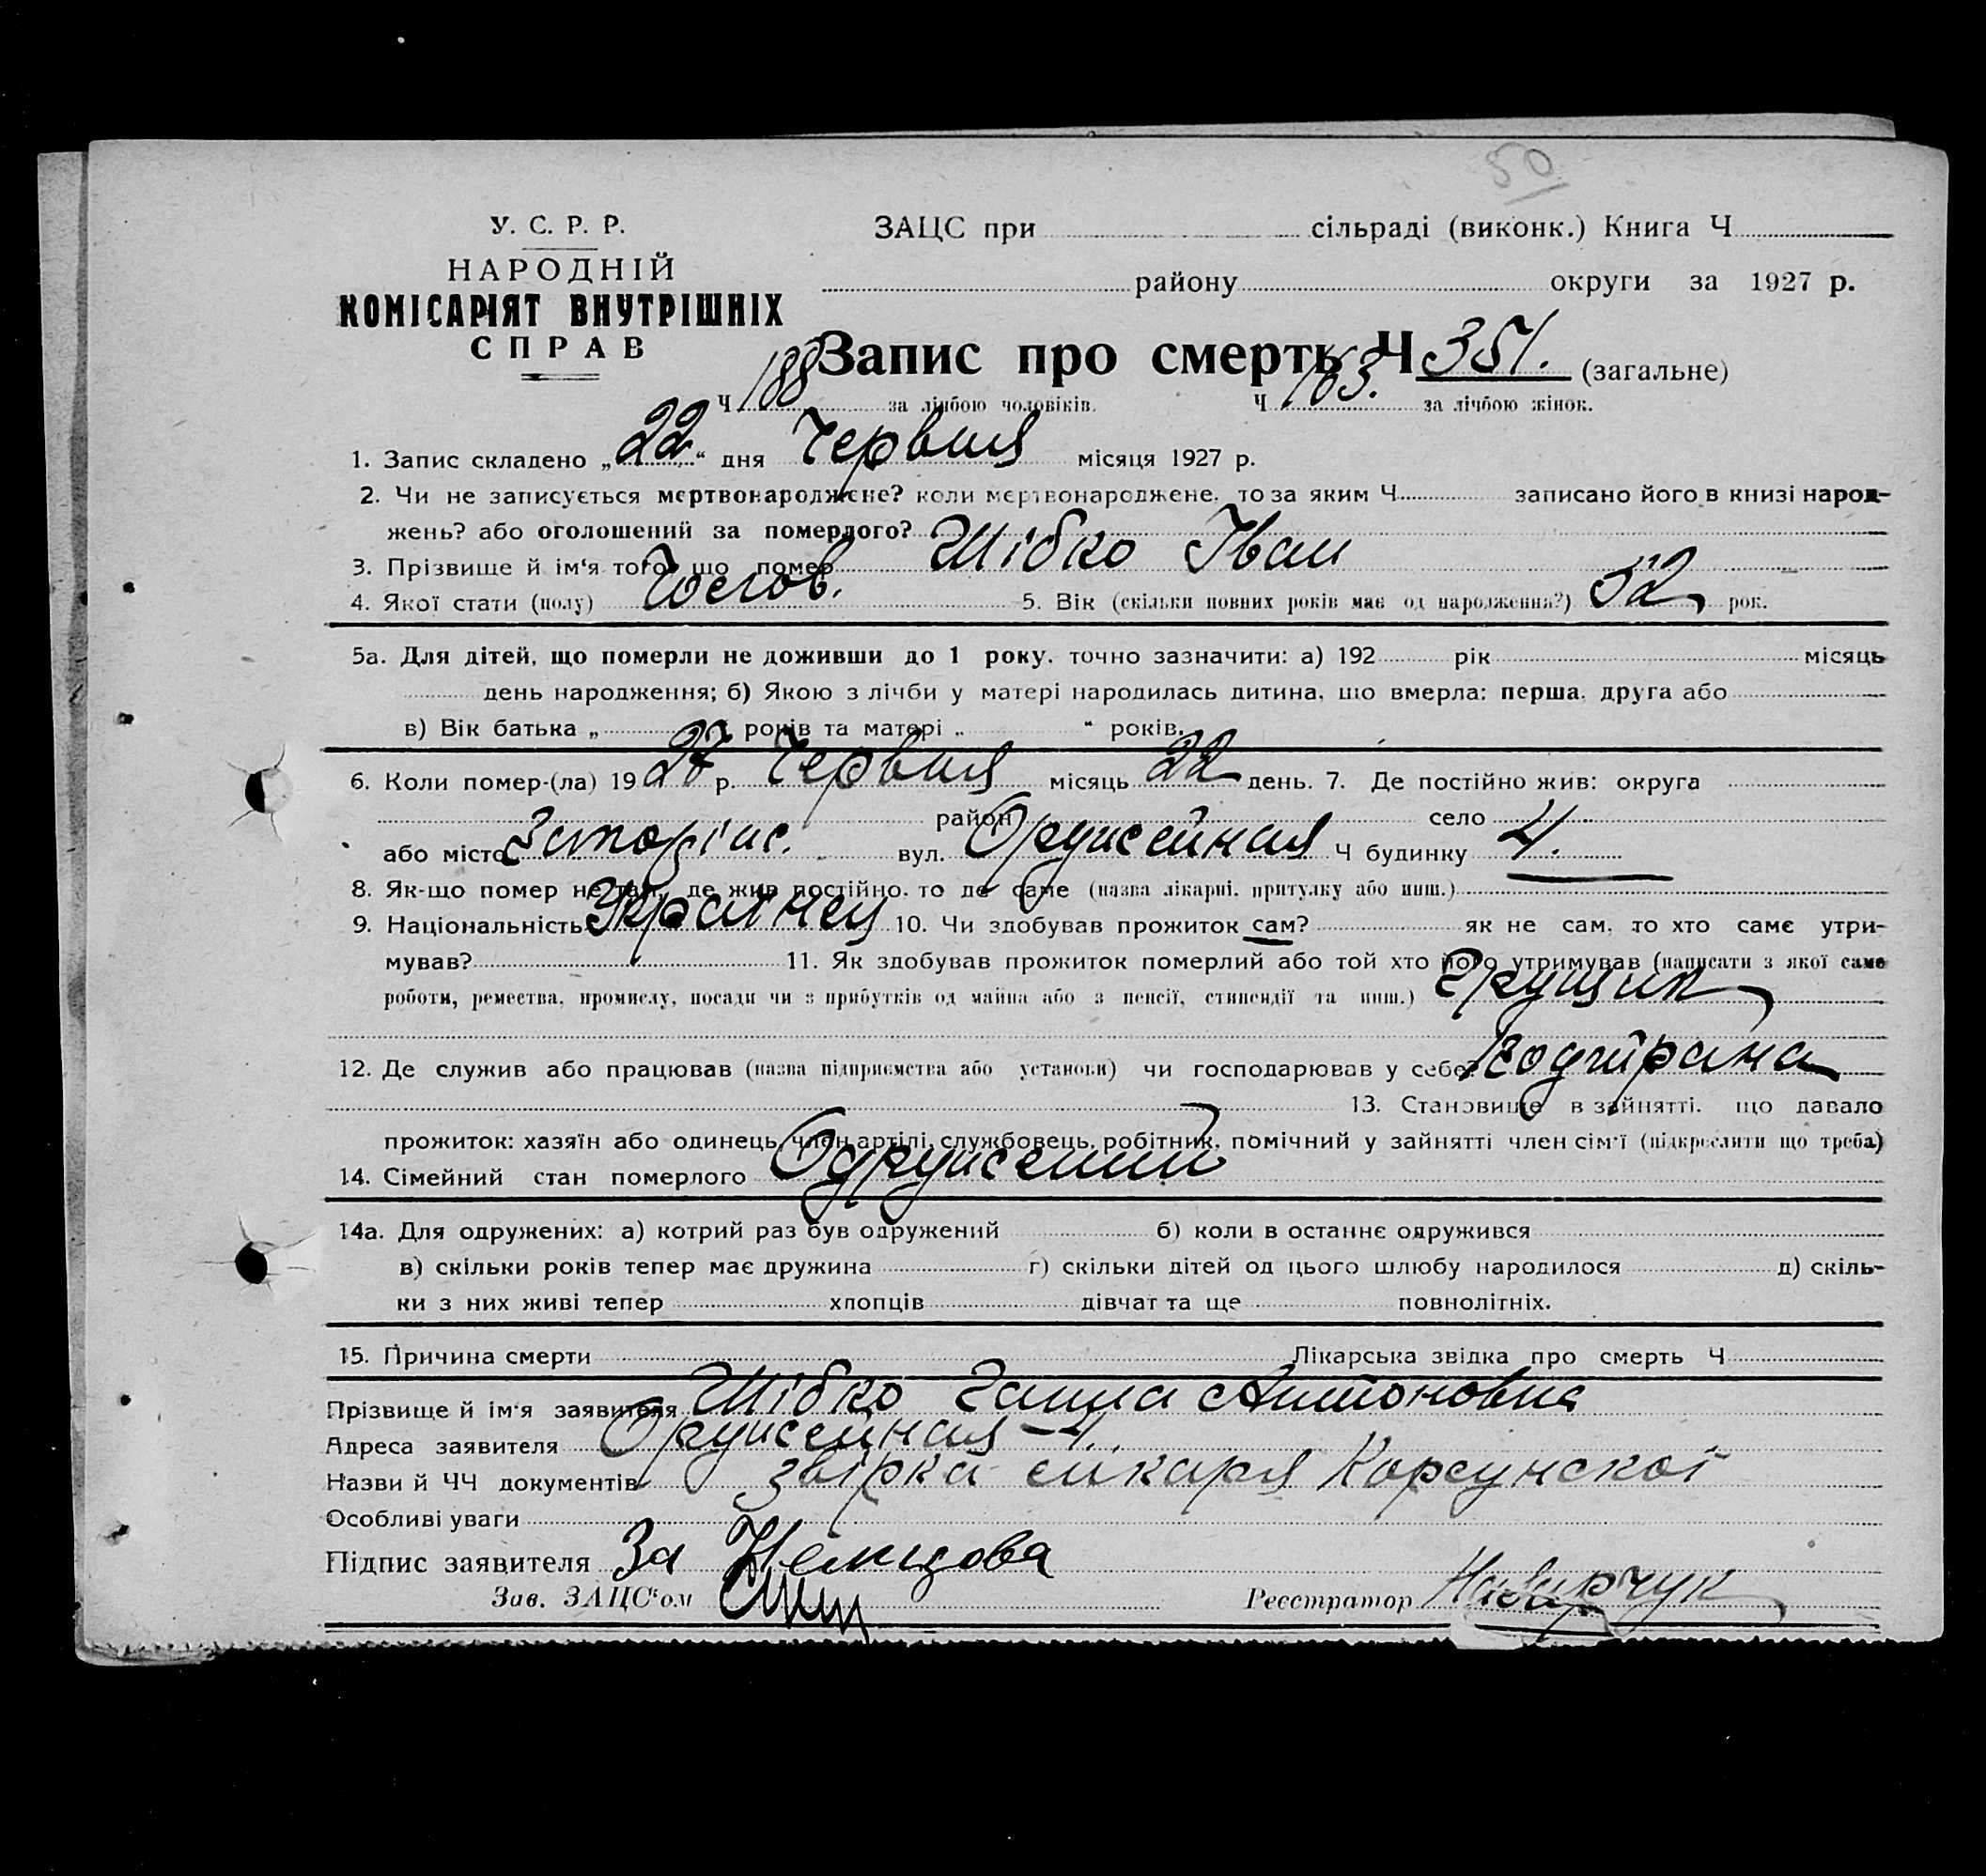 50
У. С. Р. Р.
НАРОДНІЙ
КОМІСАРІЯТ ВНУТРІШНІХ
СПРАВ
ЗАЦС при сільраді (виконк.) Книга Ч
району округи за 1927 р.
Запис про смерть Ч 351. (загальне)
Ч 188 за лічбою чоловіків. Ч 163. за лічбою жінок.
1. Запис складено „22“ дня Червня місяця 1927 р.
2. Чи не записується мертвонароджене? коли мертвонароджене, то за яким Ч записано його в книзі народ-
жень? або оголошений за померлого?
3. Прізвище й ім‘я того, що помер Шібко Іван
4. Якої стати (полу) Чолов. 5. Вік (скільки повних років має од народження?) 52 рок.
5а. Для дітей, що померли не доживши до 1 року, точно зазначити: а) 192 рік місяць
день народження; б) Якою з лічби у матері народилась дитина, що вмерла: перша, друга або
в) Вік батька „ “ років та матері „ “ років.
6. Коли помер-(ла) 1927 р. Червня місяць 22 день. 7. Де постійно жив: округа
район село
або місто Запоріж. вул. Оружейная Ч будинку 4.
8. Як-що помер не там, де жив постійно, то де саме (назва лікарні, притулку або инш.)
9. Національність Украінец 10. Чи здобував прожиток сам? як не сам, то хто саме утри-
мував? 11. Як здобував прожиток померлий або той хто його утримував (написати з якої саме
роботи, ремества, промислу, посади чи з прибутків од майна або з пенсії, стипендії та инш.) Грущик
12. Де служив або працював (назва підприємства або установи) чи господарював у себе?
13. Становище в зайнятті, що давало
прожиток: хазяїн або одинець, член артілі, службовець, робітник, помічний у зайнятті член сім‘ї (підкреслити що треба)
14. Сімейний стан померлого Одружений
14а. Для одружених: а) котрий раз був одружений б) коли в останнє одружився
в) скільки років тепер має дружина г) скільки дітей од цього шлюбу народилося д) скіль-
ки з них живі тепер хлопців дівчат та ще повнолітніх.
15. Причина смерти Лікарська звідка про смерть Ч
Прізвище й ім‘я заявителя Шібко Ганна Антоновна
Адреса заявителя Оружейная – 4.
Назви й ЧЧ документів звірка лікаря Корсунскоі
Особливі уваги
Підпис заявителя За Немцова
Зав. ЗАЦС‘ом Реєстратор